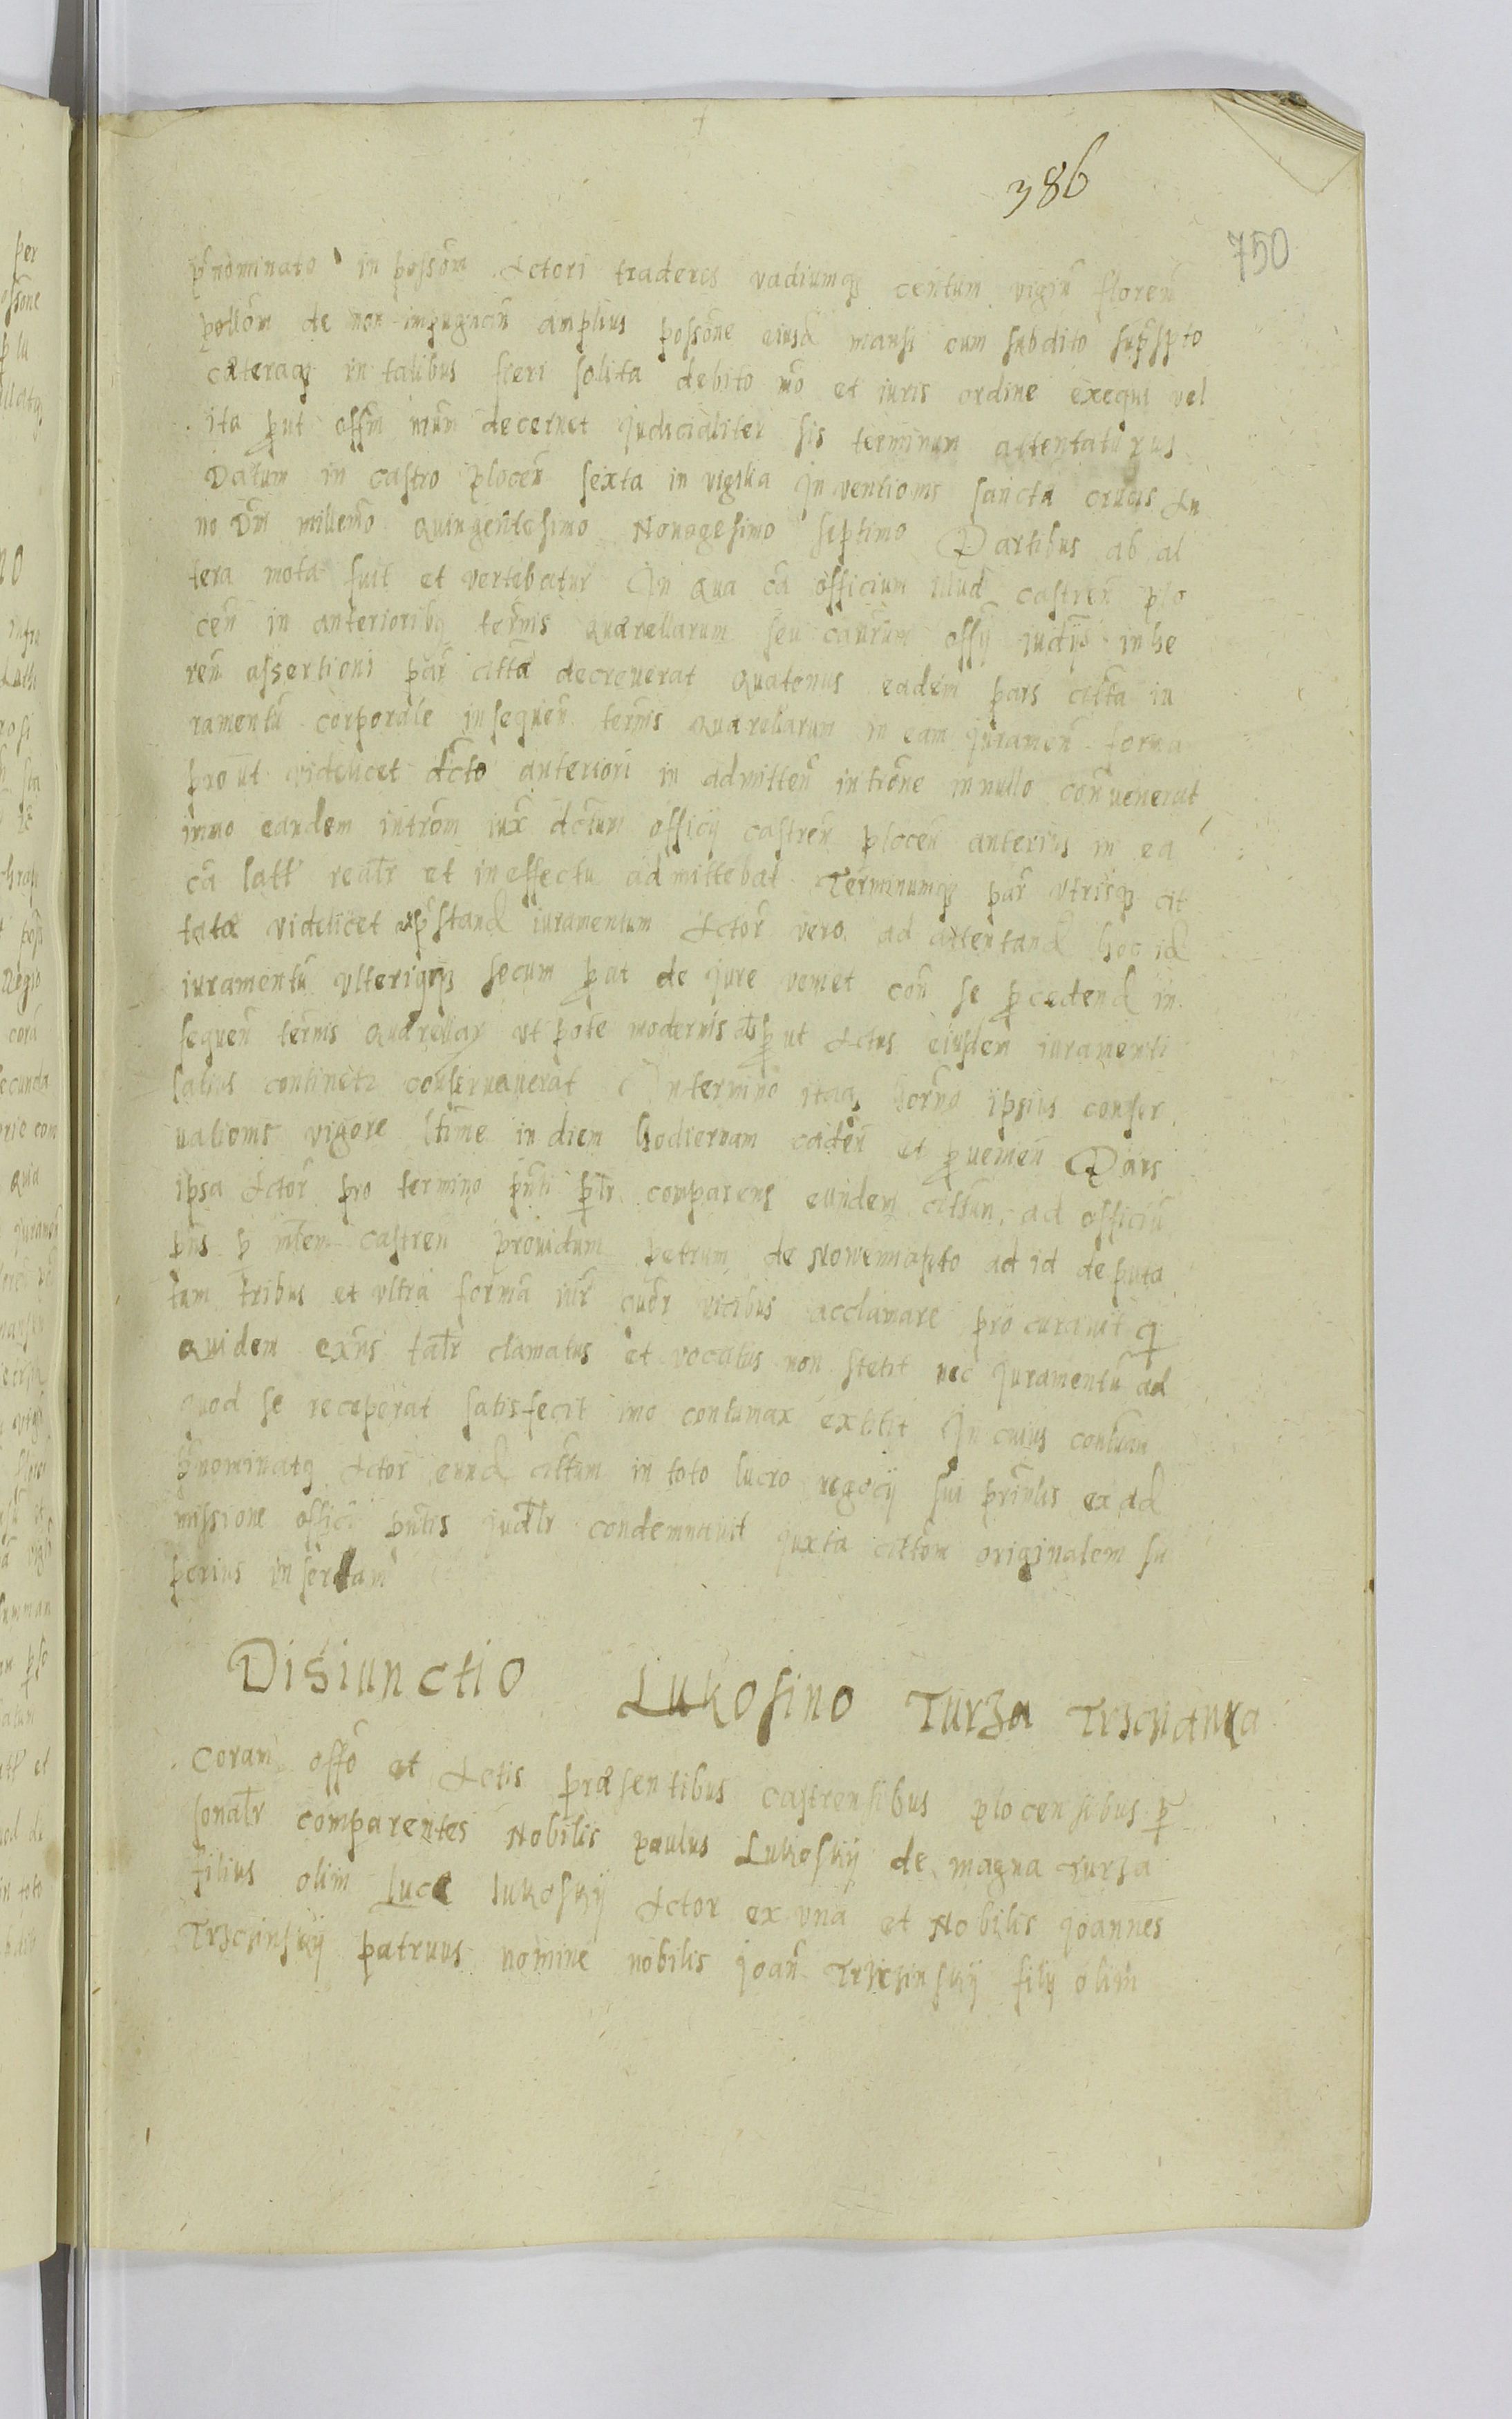 386
750
pñominato in possom Actori traderes vadiumq centum vigin floreñ
pollom de non impugnan amplius possone eiusd mansi cum subdito supspto
cæteraq in talibus fieri solita debito mo et iuris ordine exequi vel
ita put offm nrum decernet judicialiter sis terminum attentaturus
Datum in castro ploceñ sexta in vigilia Inventionis sanctæ crucis An
no Dni millemo quingentesimo Nonagesimo septimo Partibus ab al
tera mota fuit et vertebatur In qua ca officium illud castreñ plo
ceñ in anterioribq termis quærellarum seu caurum offy iudiy inhe
reñ assertioni par citta decreuerat quatenus eadem pars citta iu
ramentu corporale insequeñ termis quærellarum in eam jurameñ forma
prout videlicet dcto anteriori in admitteñ introne in nullo conuenerat
immo eandem introm iux dctum officy castreñ ploceñ anterius in ea
ca latt realr et in effectu admittebat Terminumq par vtrisq cit
tatæ videlicet pstand iuramentum Actor vero ad attentand hoc id
iuramentu vlteriqq secum put de jure veniet con se pcedend in
sequeñ termis quærellar ut pote modernis put Actus eiusdem iuramenti
latius continet conservauerat In termino itaq horno ipsius conser
uationis vigore ltime in diem hodiernam cadeñ et pueneñ Pars
ipsa Actor pro termino pnti plr comparens eundem cittum ad officiu
pns p mtem castreñ prouidum petrum de Nowemiasto ad id deputa
tum tribus et vltra forma iur quor vicibus acclamare procurauit q
quidem exns talr clamatus et vocatus non stetit nec juramentu ad
quod se receperat satisfecit imo contumax extitit In cuius contum
pnominatq Actor eund cittum in toto lucro negocy sui prinlis ex ad
missione offici pntis judlr condemnauit juxta cittom originalem su
perius insertam
Disiunctio Lukosino Turza Trzcinanka
Coram offo et Actis præsentibus castrensibus plocensibus p
sonalr comparentes Nobilis paulus Lukosky de magna Turza
filius olim Lucæ lukosky Actor ex una et Nobilis Joannes
Trzcinsky patruus nomine nobilis Joañ Trzcinsky fily olim